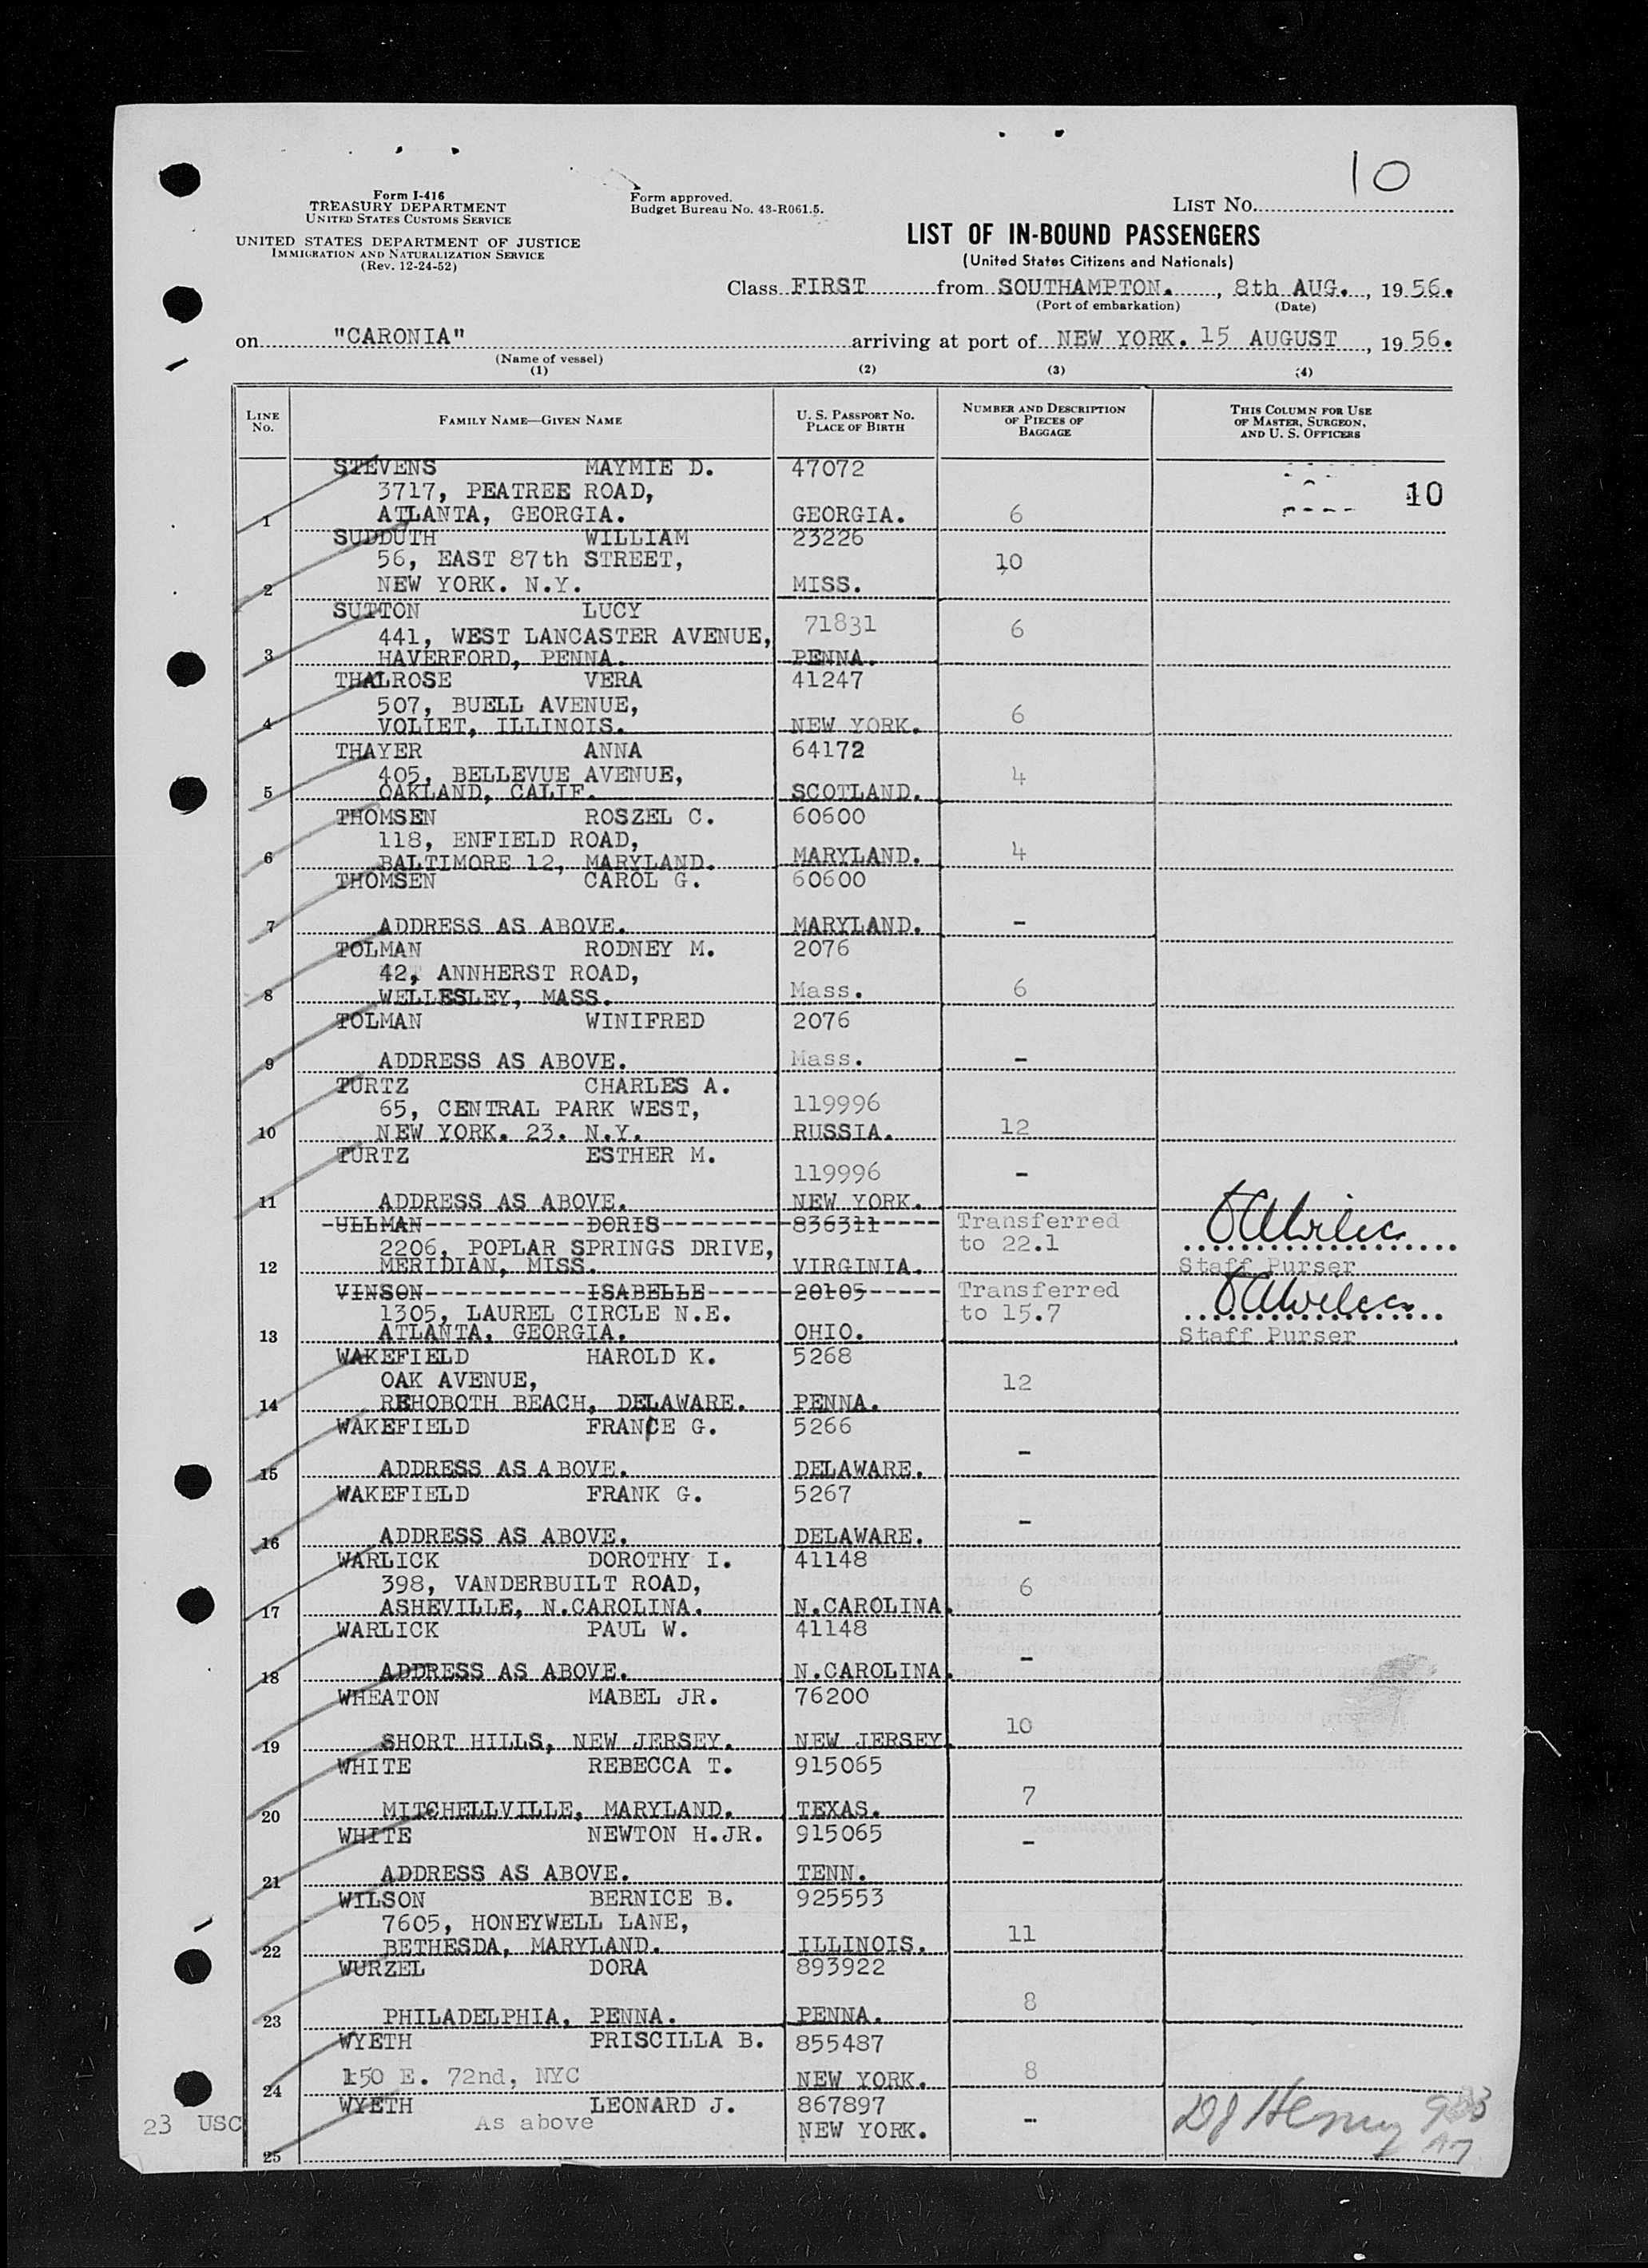 10
Form I-416
TREASURY DEPARTMENT
UNITED STATES CUSTOMS SERVICE
UNITED STATES DEPARTMENT OF JUSTICE
IMMIGRATION AND NATURALIZATION SERVICE
(Rev. 12-24-52)
Form approved.
Budget Bureau No. 43-R061.5.
LIST NO.
LIST OF IN-BOUND PASSENGERS
(United States Citizens and Nationals)
Class FIRST from SOUTHAMPTON. , 8th AUG. , 19 56.
(Port of embarkation) (Date)
on "CARONIA" arriving at port of NEW YORK. 15 AUGUST , 19 56.
(Name of vessel)
(1) (2) (3) (4)
LINE NO. FAMILY NAME—GIVEN NAME U. S. PASSPORT NO. PLACE OF BIRTH NUMBER AND DESCRIPTION OF PIECES OF BAGGAGE THIS COLUMN FOR USE OF MASTER, SURGEON, AND U. S. OFFICERS
STEVENS MAYMIE D. 47072
3717, PEATREE ROAD, 10
1 ATLANTA, GEORGIA. GEORGIA. 6
SUDDUTH WILLIAM 23226
56, EAST 87th STREET, 10
2 NEW YORK. N.Y. MISS.
SUTTON LUCY 71831 6
441, WEST LANCASTER AVENUE,
3 HAVERFORD, PENNA. PENNA.
THALROSE VERA 41247
507, BUELL AVENUE, 6
4 VOLIET, ILLINOIS. NEW YORK.
THAYER ANNA 64172
405, BELLEVUE AVENUE, 4
5 OAKLAND, CALIF. SCOTLAND.
THOMSEN ROSZEL C. 60600
118, ENFIELD ROAD,
6 BALTIMORE 12, MARYLAND. MARYLAND. 4
THOMSEN CAROL G. 60600
7 ADDRESS AS ABOVE. MARYLAND. -
TOLMAN RODNEY M. 2076
42, ANNHERST ROAD,
8 WELLESLEY, MASS. Mass. 6
TOLMAN WINIFRED 2076
9 ADDRESS AS ABOVE. Mass. -
TURTZ CHARLES A.
65, CENTRAL PARK WEST, 119996
10 NEW YORK. 23. N.Y. RUSSIA. 12
TURTZ ESTHER M.
119996 -
11 ADDRESS AS ABOVE. NEW YORK.
-ULLMAN-----------DORIS--------836311---- Transferred
2206, POPLAR SPRINGS DRIVE, to 22.1
12 MERIDIAN, MISS. VIRGINIA. Staff Purser
VINSON-----------ISABELLE------20105----- Transferred
1305, LAUREL CIRCLE N.E. to 15.7
13 ATLANTA, GEORGIA. OHIO. Staff Purser
WAKEFIELD HAROLD K. 5268
OAK AVENUE, 12
14 REHOBOTH BEACH, DELAWARE. PENNA.
WAKEFIELD FRANCE G. 5266
15 ADDRESS AS ABOVE. DELAWARE. -
WAKEFIELD FRANK G. 5267
16 ADDRESS AS ABOVE. DELAWARE. -
WARLICK DOROTHY I. 41148
398, VANDERBUILT ROAD, 6
17 ASHEVILLE, N.CAROLINA. N.CAROLINA.
WARLICK PAUL W. 41148
18 ADDRESS AS ABOVE. N.CAROLINA. -
WHEATON MABEL JR. 76200
19 SHORT HILLS, NEW JERSEY. NEW JERSEY. 10
WHITE REBECCA T. 915065
20 MITCHELLVILLE, MARYLAND. TEXAS. 7
WHITE NEWTON H.JR. 915065 -
21 ADDRESS AS ABOVE. TENN.
WILSON BERNICE B. 925553
7605, HONEYWELL LANE, 11
22 BETHESDA, MARYLAND. ILLINOIS.
WURZEL DORA 893922
23 PHILADELPHIA, PENNA. PENNA. 8
WYETH PRISCILLA B. 855487
24 150 E. 72nd, NYC NEW YORK. 8
WYETH LEONARD J. 867897
23 USC As above NEW YORK. - DJ Henry
25